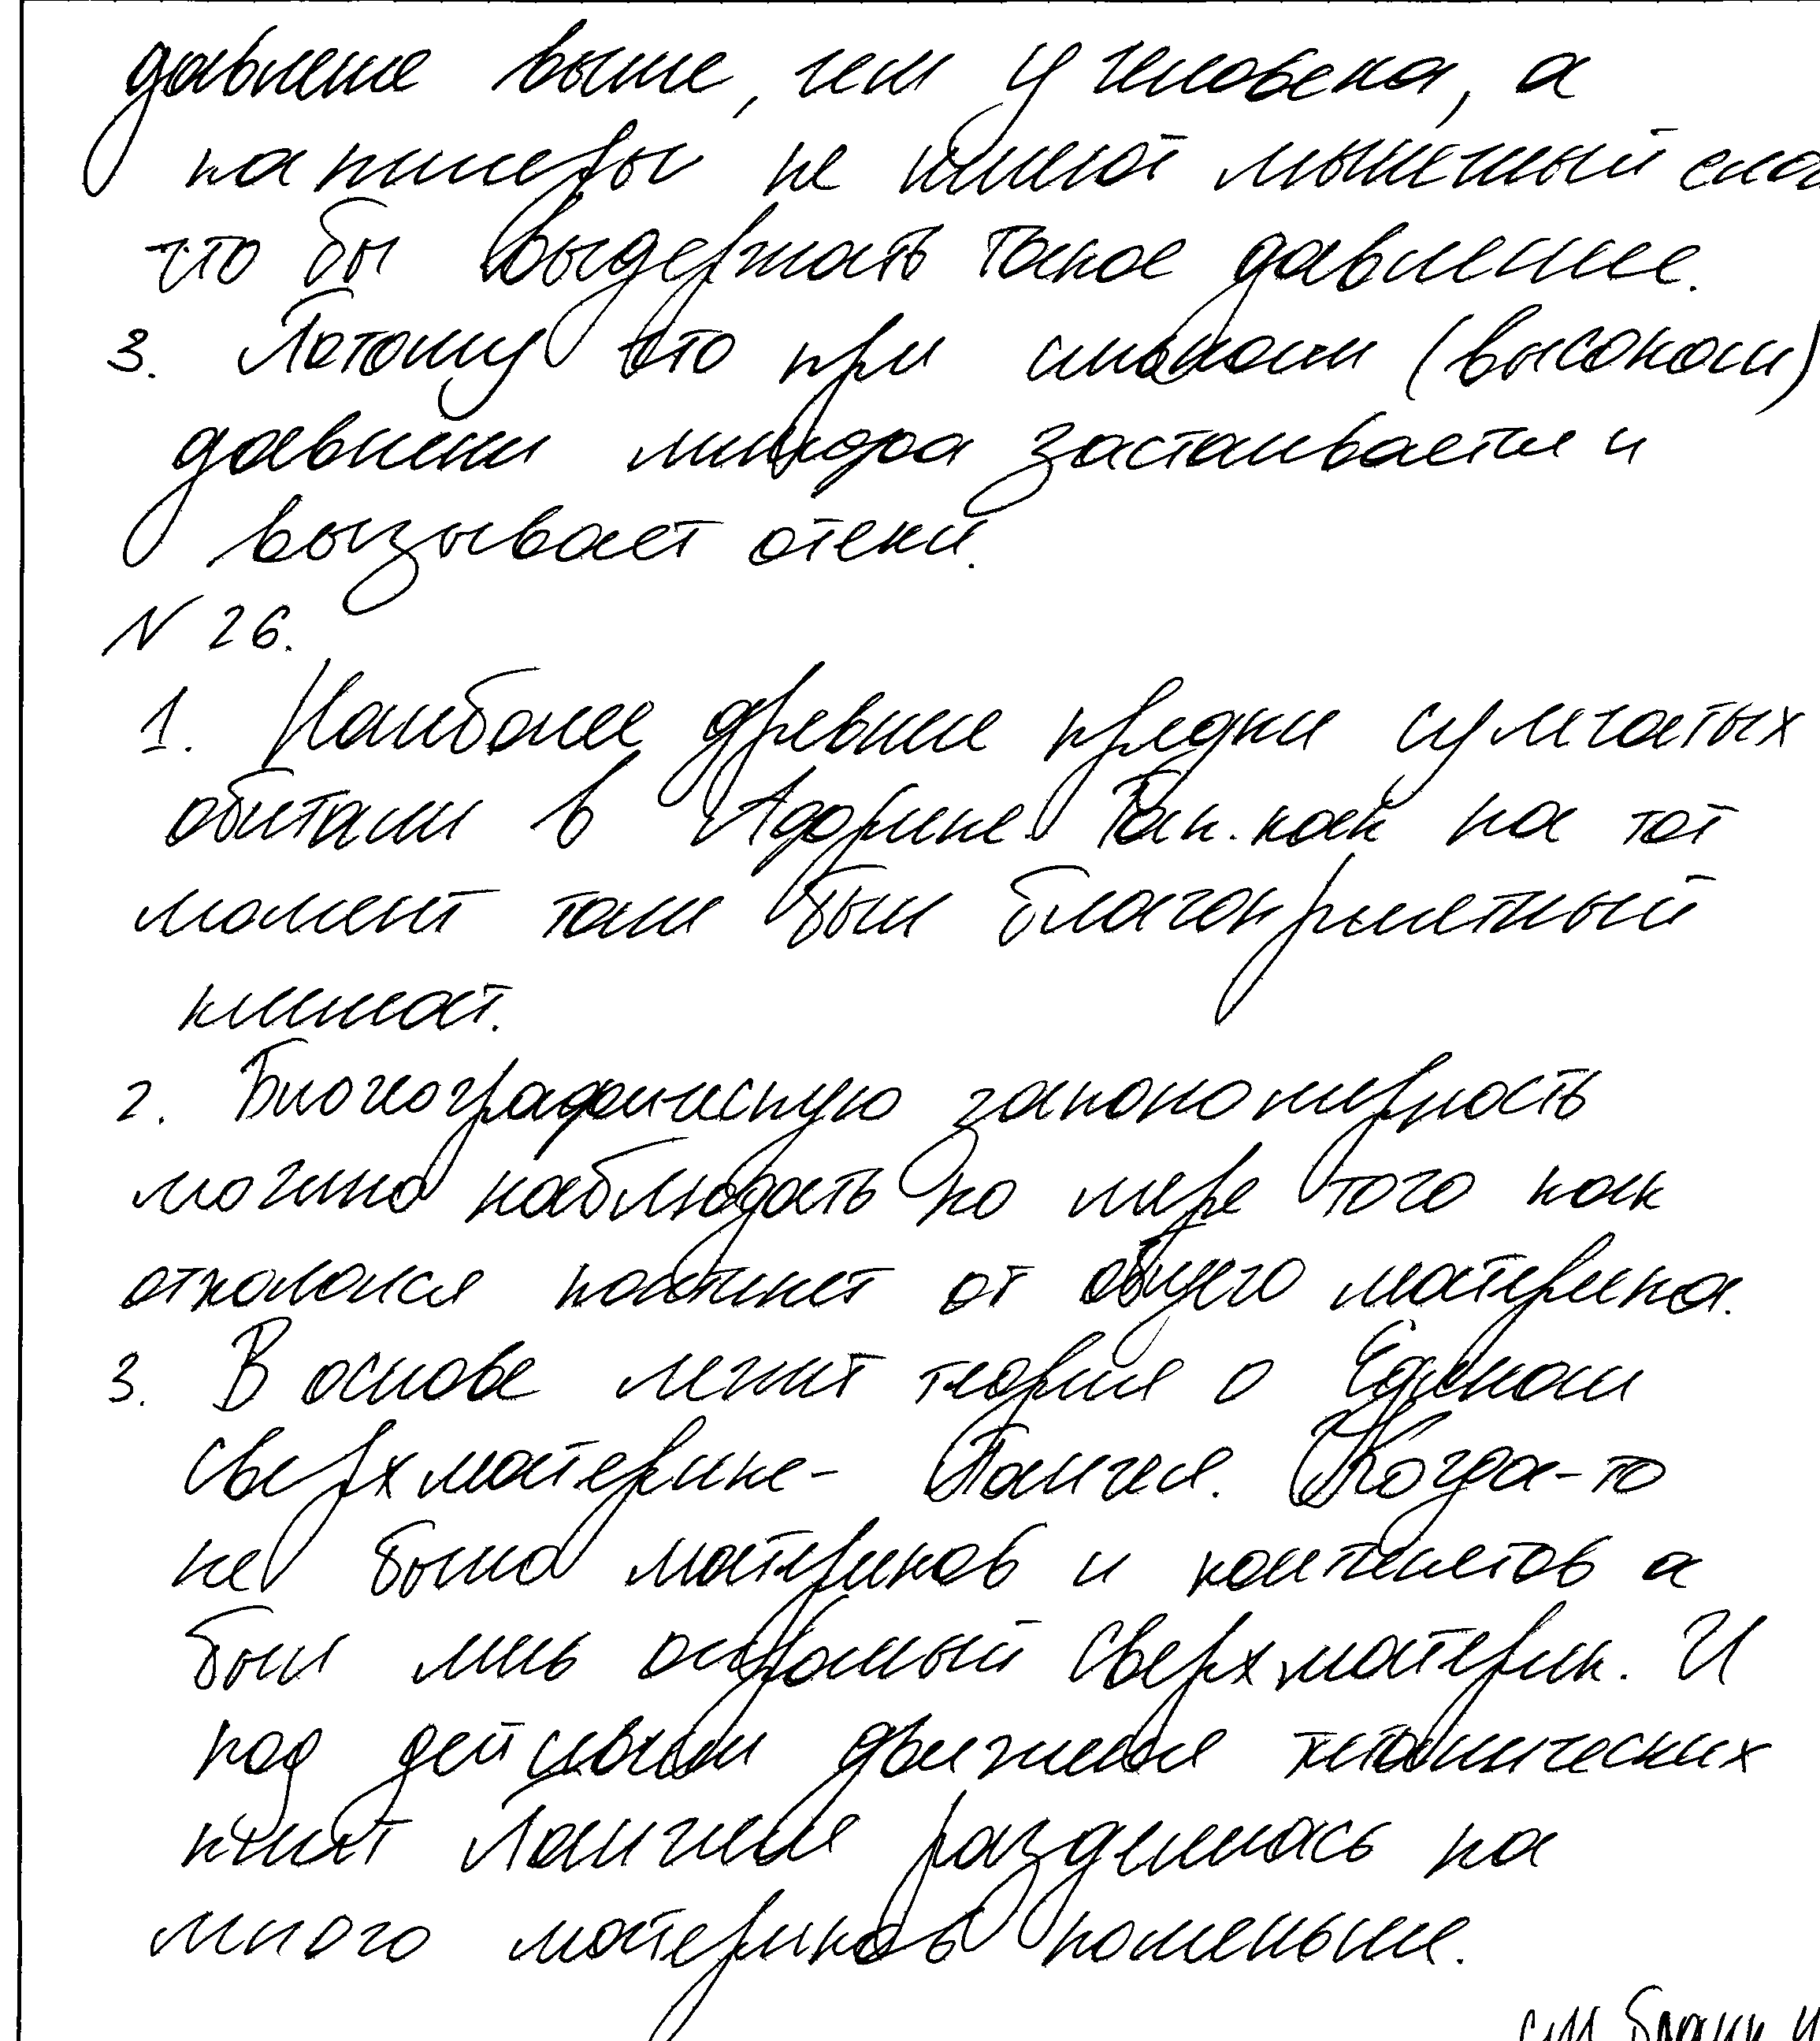 давление выше, чем у человека, а
капилляры не имеют мышечный сло
что бы выдержать такое давление.
3. Потому что при сильном (высоком)
давлении лимфа застаивается и
вызывает отеки.
N 26.
1. Наиболее древние предки сумчатых
обитали в Африке. Так.как на тот
момент там был благоприятный
климат.
2. Биогеографическую закономерность
можно наблюдать по мере того как
откололся континет от общего материка.
3. В основе лежит теория о Едином
сверхматерике- Пангея. Когда-то
не было материков и континетов а
был лишь огромный сверхматерик. И
под действием движения тектонических
плит Пангея разделилась на
много материков поменьше.
см бланк